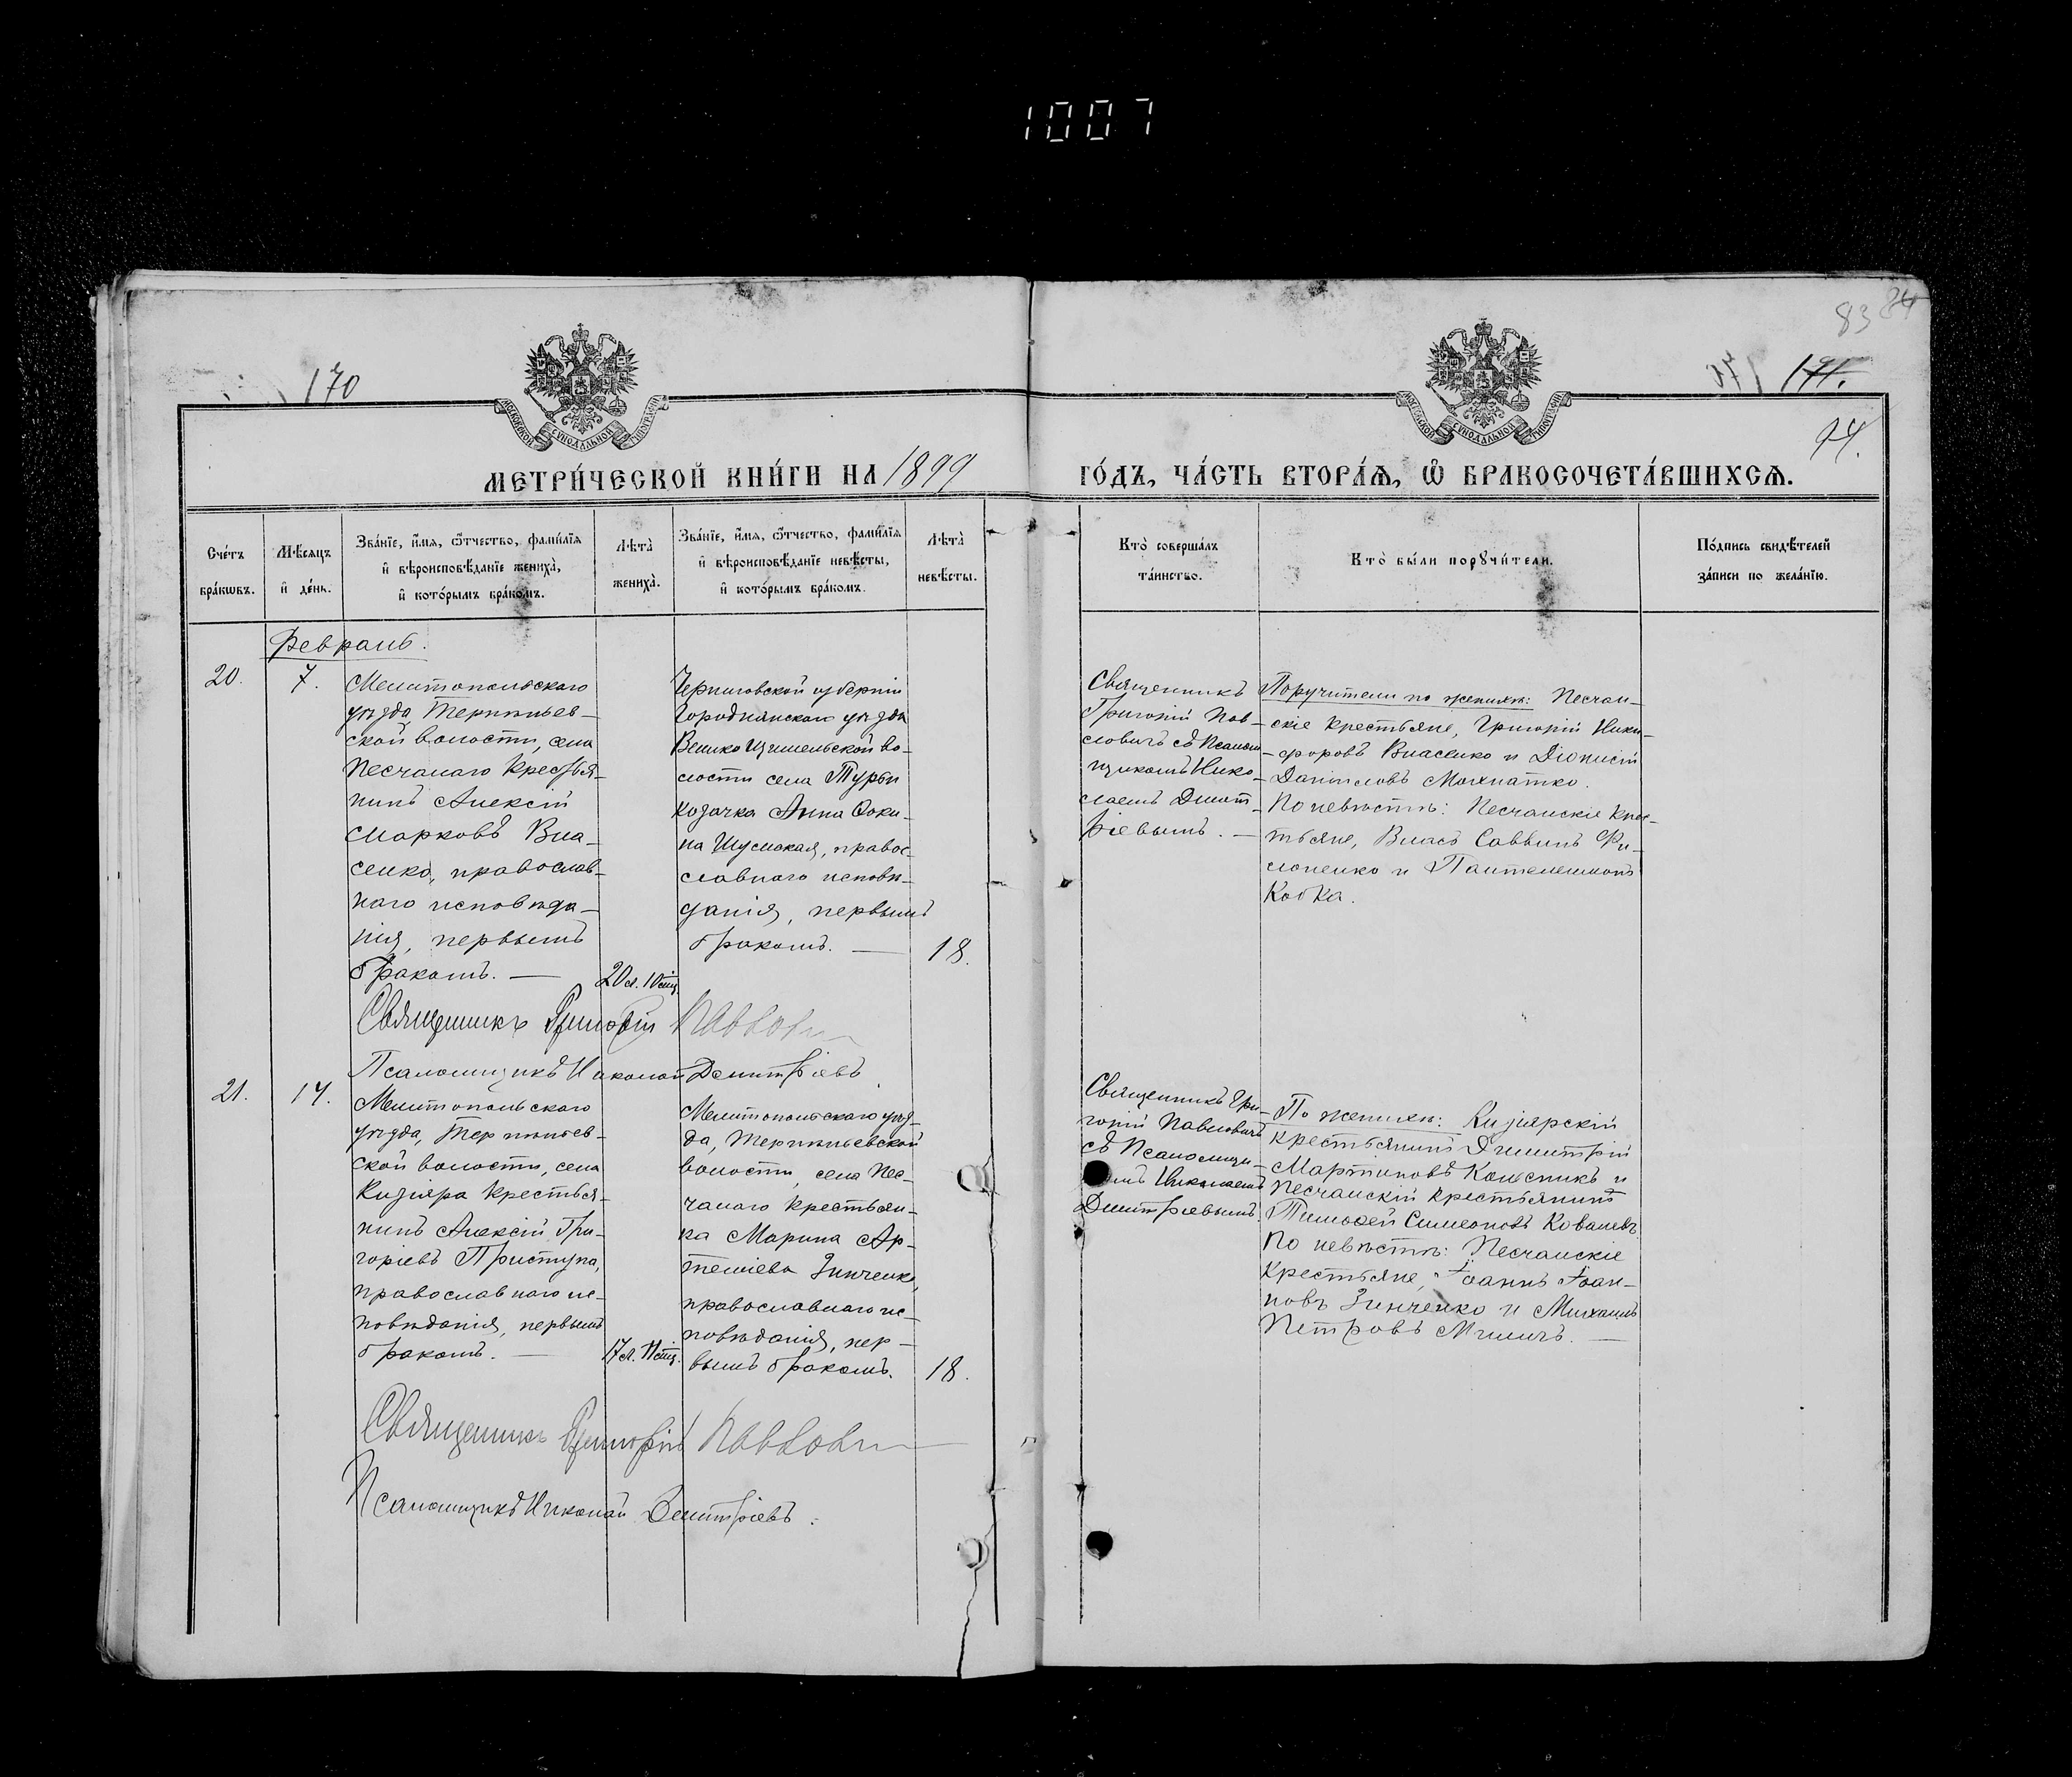 1007
83 84
170
171.
94.
МОСКОВСКОЙ СѴНОДАЛЬНОЙ ТИПОГРАФІИ
МОСКОВСКОЙ СѴНОДАЛЬНОЙ ТИПОГРАФІИ
МЕТРИ́ЧЕСКОЙ КНИ́ГИ НА 1899 ГО́ДЪ, ЧА́СТЬ ВТОРА́Ѧ, Ѽ БРАКОСОЧЕТА́ВШИХСѦ.
Сче́тъ
бра́кѡвъ.
Мѣ́сяцъ
и҆ де́нь.
Зва́нїе, и҆́мѧ, ѻ҆́тчество, фами́лїѧ
и҆ вѣроисповѣ́данїе жениха̀,
и҆ кото́рымъ бра́комъ.
Лѣта̀
жениха̀.
Зва́нїе, и҆́мѧ, ѻ҆́тчество, фами́лїѧ
и҆ вѣроисповѣ́данїе невѣ́сты,
и҆ кото́рымъ бра́комъ.
Лѣта̀
невѣ́сты.
Кто̀ соверша́лъ
та́инство.
Кто̀ бы́ли порꙋчи́тели.
По́дпись свидѣ́телей
за́писи по жела́нїю.
Февраль.
20.
7.
Мелитопольскаго
уѣзда, Терпѣньев-
ской волости, села
Песчанаго крестья-
нинъ Алексій
Марковъ Вла-
сенко, православ-
наго исповѣда-
нія, первымъ
бракомъ. —
20 л. 10 мц.
Черниговской губерніи
Городнянскаго уѣзда
Велико Щимельской во-
лости села Турьи
козачка Анна Ѳоки-
на Шумская, правос-
лавнаго исповѣ-
данія, первымъ
бракомъ. —
18.
Священникъ
Григорій Пав-
ловичъ съ Псалом-
щикомъ Нико-
лаемъ Димит-
ріевымъ. —
Поручители по женихѣ: Песчан-
скіе крестьяне, Григорій Ники-
форовъ Власенко и Діонисій
Даніиловъ Мохнатко.
По невѣстѣ: Песчанскіе крес-
тьяне, Власъ Саввинъ Фи-
лоненко и Пантелеимонъ
Кобка.
Священникъ Григорій Павлович
Псаломщикъ Николай Димитріевъ
21.
14.
Мелитопольскаго
уѣзда, Терпѣньев-
ской волости, села
Кизіяра крестья-
нинъ Алексій Гри-
горіевъ Приступа,
православнаго ис-
повѣданія, первымъ
бракомъ. —
17 л. 11 мц.
Мелитопольскаго уѣз-
да, Терпѣньевской
волости, села Пес-
чанаго крестьян-
ка Марина Ар-
теміева Зинченко,
православнаго ис-
повѣданія, пер-
вымъ бракомъ.
18.
Священникъ Гри-
горій Павловичъ
съ Псаломщи-
омъ Николаемъ
Димитріевымъ.
По женихѣ: Кизіярскій
крестьянинъ Димитрій
Мартиновъ Колсникъ и
Песчанскій крестьянинъ
Тимоѳей Симеоновъ Ковалевъ.
По невѣстѣ: Песчанскіе
крестьяне, Іоаннъ Іоан-
новъ Зинченко и Михаилъ
Петровъ Мишичъ. —
Священникъ Григорій Павлович
Псаломщикъ Николай Димитріевъ.